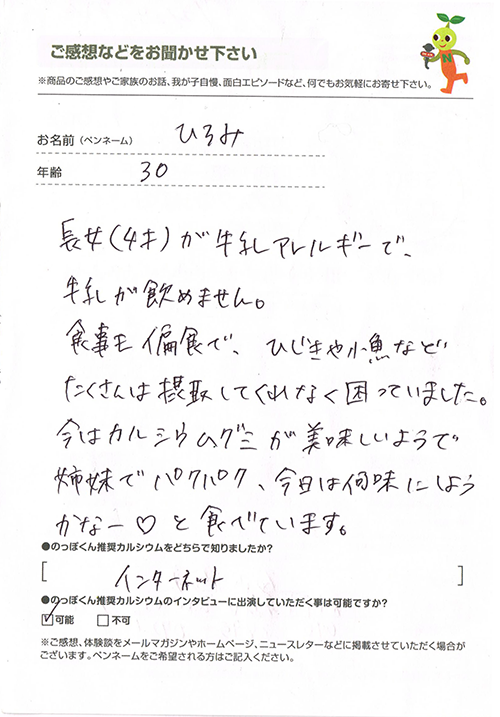 ご感想などをお聞かせ下さい
※商品のご感想やご家族のお話、我が子自慢、面白エピソードなど、何でもお気軽にお寄せ下さい。
お名前（ペンネーム） ひろみ
年齢 30
長女(4才)が牛乳アレルギーで、
牛乳が飲めません。
食事も偏食で、ひじきや小魚など
たくさんは摂取してくれなく困っていました。
今はカルシウムグミが美味しいようで
姉妹でパクパク、今日は何味にしよう
かなー♡と食べています。
●のっぽくん推奨カルシウムをどちらで知りましたか？
[ インターネット ]
●のっぽくん推奨カルシウムのインタビューに出演していただく事は可能ですか？
☑可能 □不可
※ご感想、体験談をメールマガジンやホームページ、ニュースレターなどに掲載させていただく場合が
ございます。ペンネームをご希望される方はご記入ください。